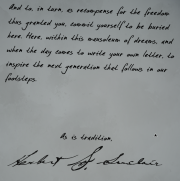 And to, in turn, as recompense for the freedom
thus granted you, commit yourself to be buried
here. Here, within this mausoleum of dreams, and
when the day comes to write your own letter, to
inspire the next generation that follows in our
footsteps.
As is tradition,
Herbert Sinclair